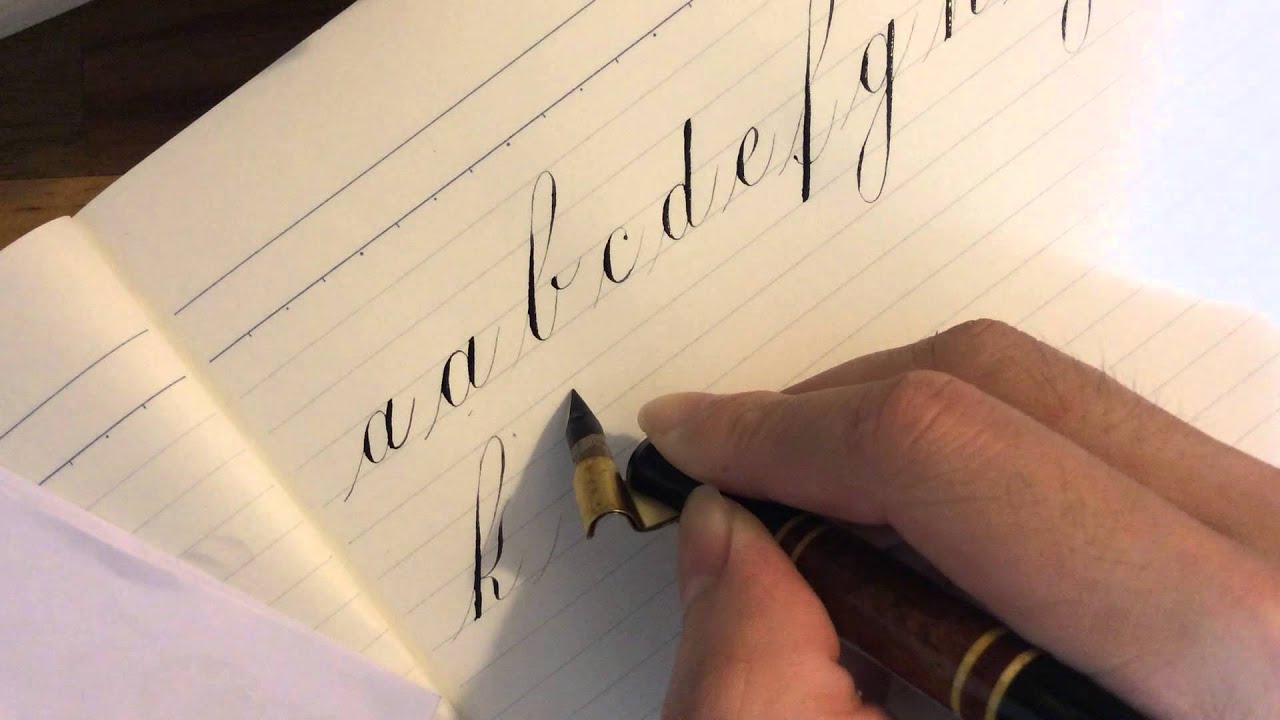 a a b c d e f g h
k